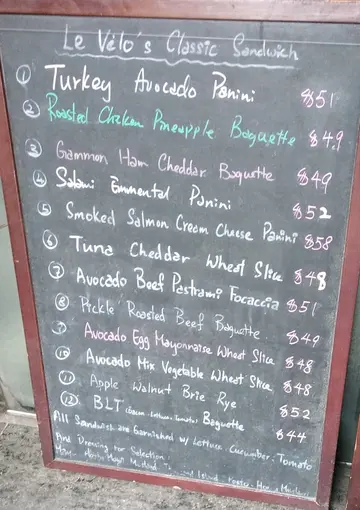 Le Vélo's Classic Sandwich
① Turkey Avocado Panini $51
② Roasted Chicken Pineapple Baguette $49
③ Gammon Ham Cheddar Baguette $49
④ Salami Emmental Panini $52
⑤ Smoked Salmon Cream Cheese Panini $58
⑥ Tuna Cheddar Wheat Slice $48
⑦ Avocado Beef Pastrami Focaccia $51
⑧ Pickle Roasted Beef Baguette $49
⑨ Avocado Egg Mayonnaise Wheat Slice $48
⑩ Avocado Mix Vegetable Wheat Slice $48
⑪ Apple Walnut Brie Rye $52
⑫ BLT (Bacon. Lettuce. Tomato) Baguette $44
All Sandwich are Garnished w/ Lettuce Cucumber. Tomato
And Dressing for Selection:
Mayo Mustard Island